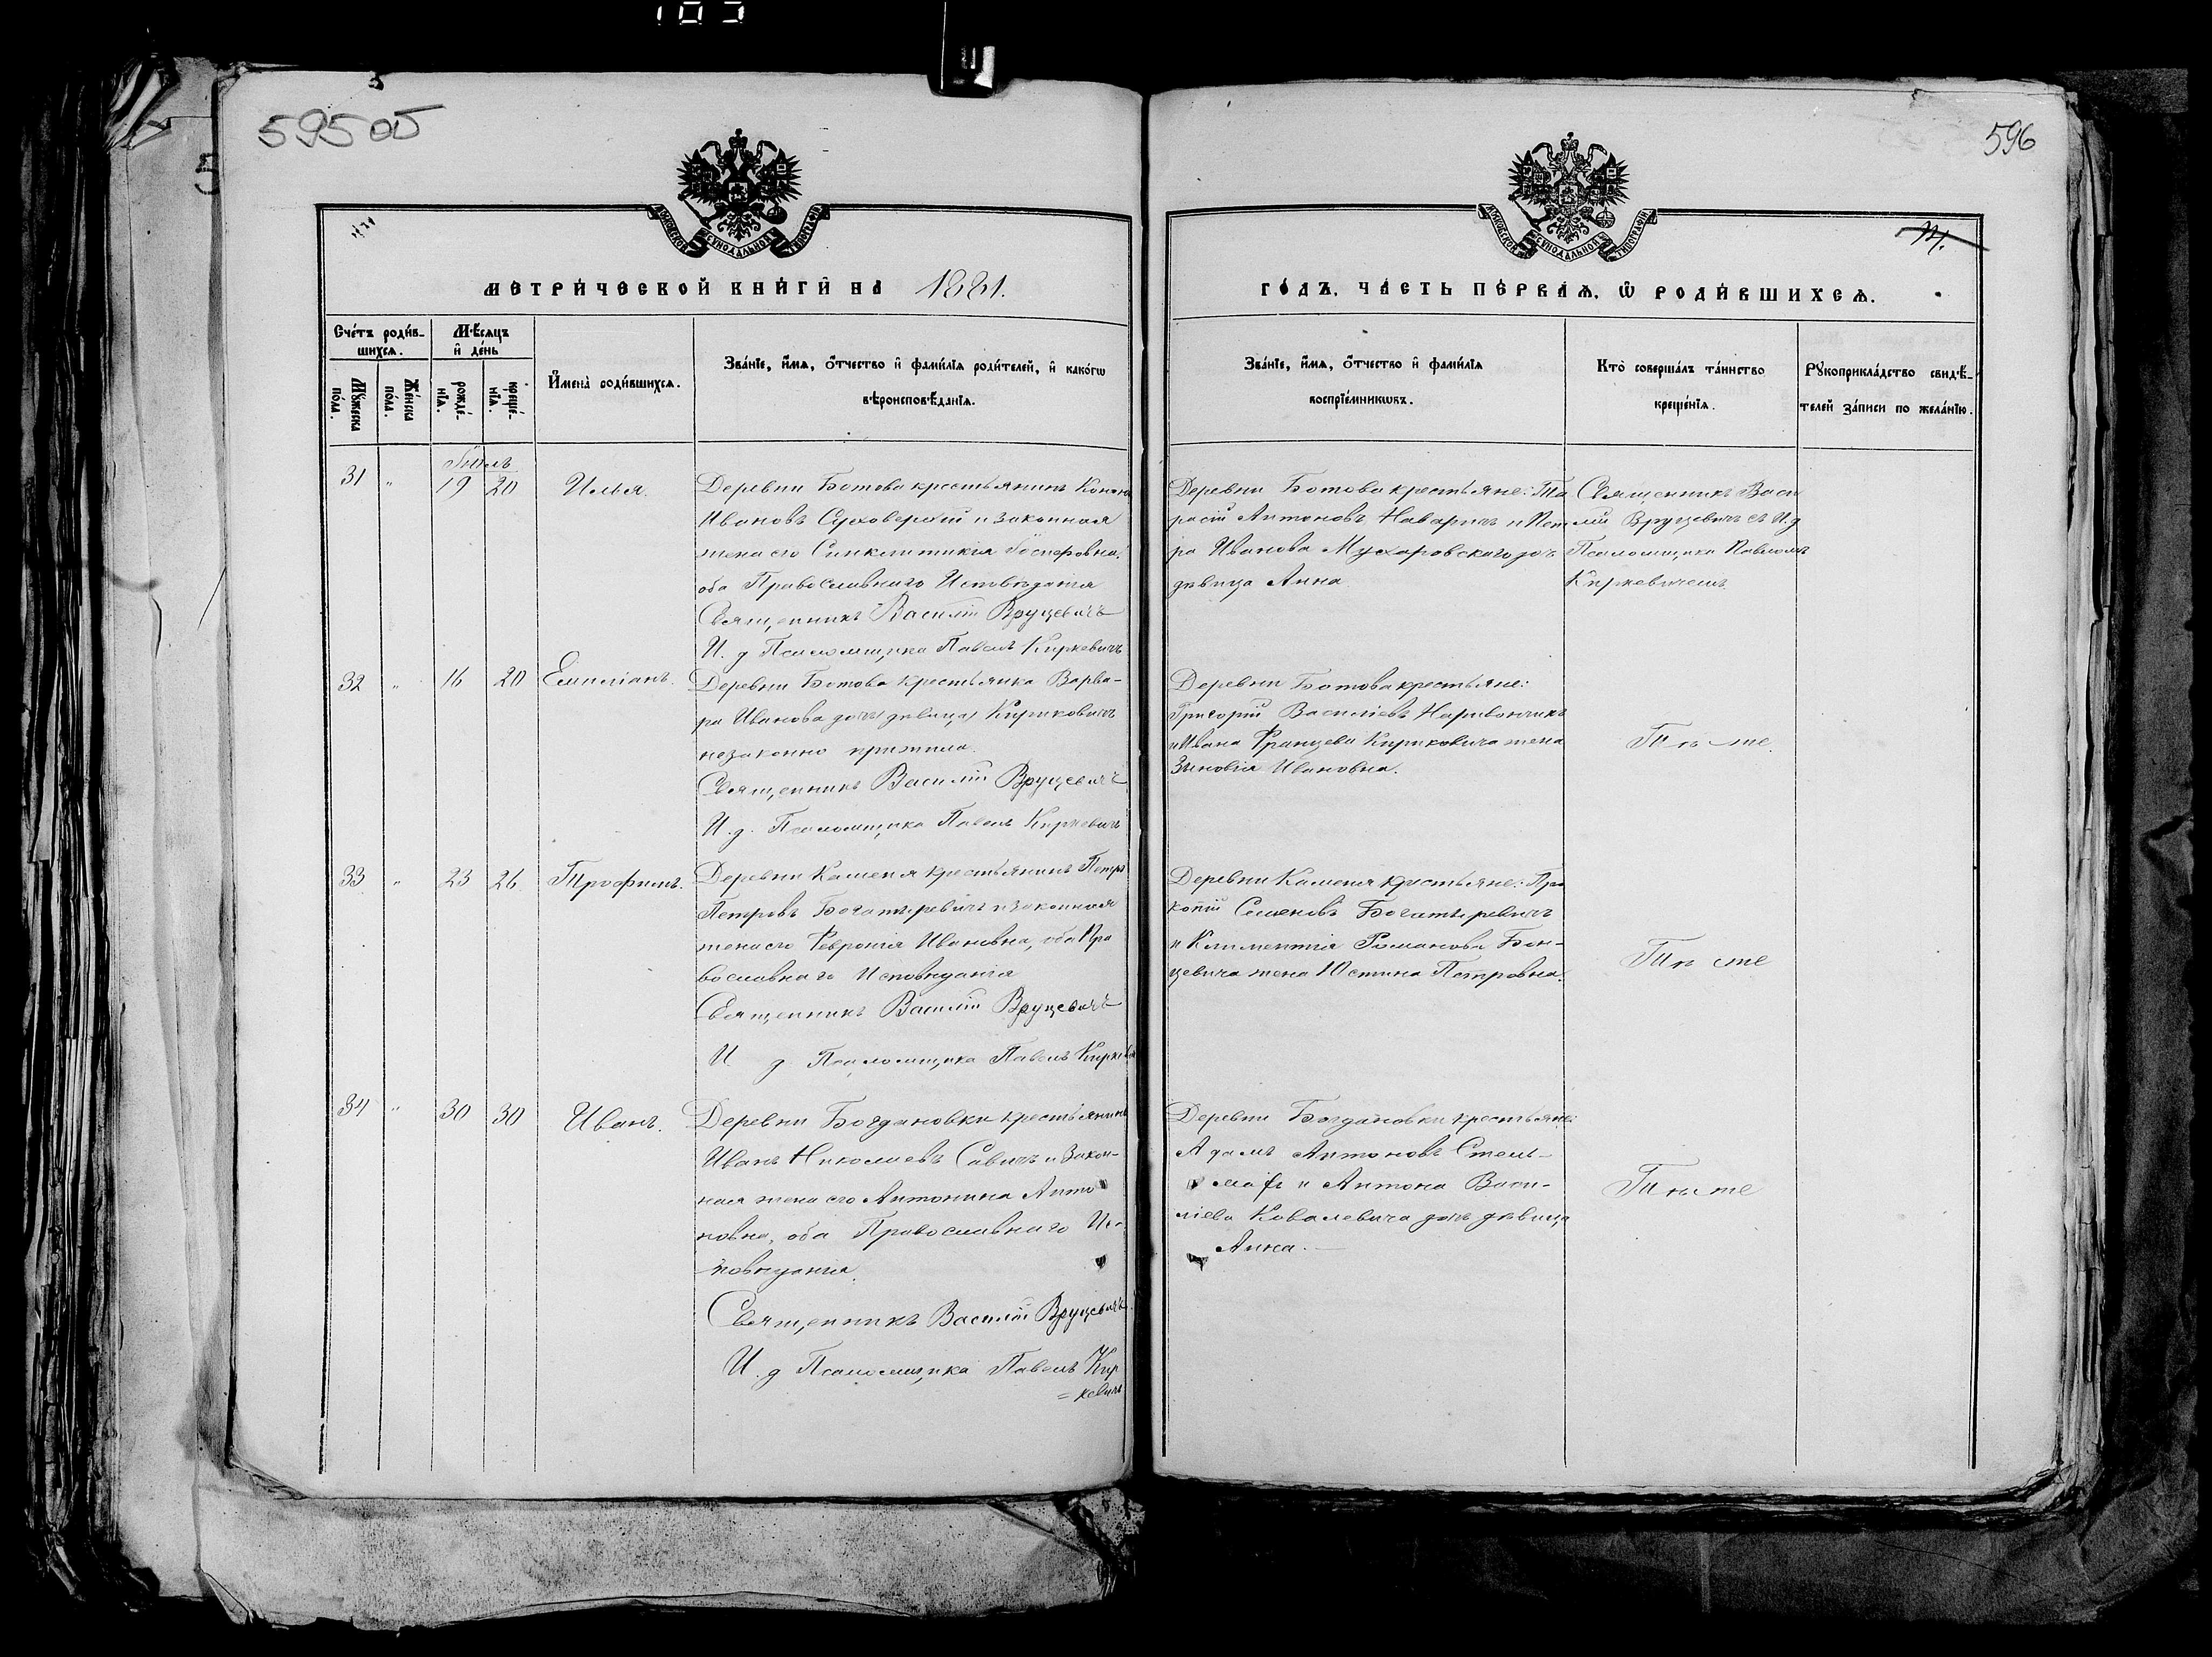 59505
596
МОСКОВСКОЙ СѴНОДАЛЬНОЙ ТИПОГРАФІИ
МОСКОВСКОЙ СѴНОДАЛЬНОЙ ТИПОГРАФІИ
МЕТРИ́ЧЕСКОЙ КНИ́ГИ НА 1881.
ГО́ДЪ, ЧА́СТЬ ПЕ́РВАѦ, Ѽ РОДИ́ВШИХСѦ.
Сче́тъ роди́в-
шихсѧ.
Мꙋ́жеска
по́ла.
Же́нска
по́ла.
М҃ѣсѧцъ
и҆ де́нь
рожде́-
нїѧ.
креще́-
нїѧ.
И҆мена̀ роди́вшихсѧ.
Зва́нїе, и҆́мѧ, ѻ҆́тчество и҆ фами́лїѧ роди́телей, и҆ како́гѡ
вѣроисповѣ́данїѧ.
Зва́нїе, и҆́мѧ, ѻ҆́тчество и҆ фами́лїѧ
воспрїе́мникѡвъ.
Кто̀ соверша́лъ та́инство
креще́нїѧ.
Рꙋкоприкла́дство свидѣ́-
телей за́писи по жела́нїю.
Іюль
31 " 19 20 Илья.
Деревни Ботова крестьянинъ Конон
Ивановъ Суховерхій и законная
жена его Синклитикія Іосифовна,
оба Православнаго Исповѣданія
Священникъ Василій Вруцевичъ
И. д Псаломщика Павелъ Киркевичъ
Деревни Ботова крестьяне: Та
расій Антоновъ Наварич и Пет
ра Иванова Мухаровскаго дочь
дѣвица Анна
Священникъ Васи
лій Вруцевичъ съ И. д
Псаломщика Павломъ
Киркевичемъ.
32 " 16 20 Емиліанъ.
Деревни Ботова крестьянка Варва-
ра Иванова дочь (дѣвица) Кириковичъ
незаконно прижила.
Священникъ Василій Вруцевичъ
И. д. Псаломщика Павелъ Киркевичъ
Деревни Ботова крестьяне:
Григорій Василіевъ
и Ивана Францева Кириковича жена
Зиновія Ивановна.
Тѣ же.
33 " 23 26 Трофимъ.
Деревни Каменя крестьянинъ Петръ
Петровъ Богатыревичъ и законная
жена его Февронія Ивановна, оба Пра
вославнаго Исповѣданія
Священникъ Василій Вруцевичъ
И д Псаломщика Павелъ Киркевич
Деревни Каменя крестьяне: Про
копій Семеновъ Богатыревичъ
и Климентія Романова Бон-
цевича жена Юстина Петровна.
Тѣ же
34 " 30 30 Иванъ.
Деревни Богдановки крестьянинъ
Иванъ Николаевъ Савичъ и Закон-
ная жена его Антонина Анто
новна, оба Православнаго Ис-
повѣданія.
Священникъ Василій Вруцевичъ
И. д Псаломщика Павелъ Кир
= кевичъ
Деревни Богдановки крестьяне:
Адамъ Антоновъ Стель-
махъ и Антона Васи-
ліева Ковалевича дочь дѣвица
Анна. —
Тѣ же